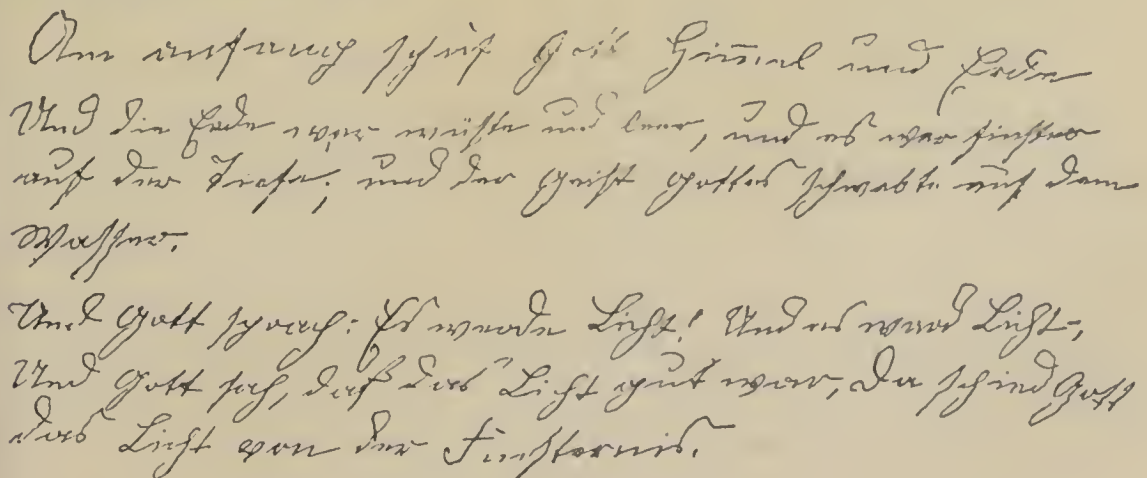 Am anfang schuf Gott Himmel und Erde
Und die Erde war wüste und leer, und es war finster
auf der Tiefe; und der Geist Gottes schwebte auf dem
Wasser.
Und Gott sprach: Es werde Licht! Und es ward Licht,
Und Gott sah, daß das Licht gut war, Da schied Gott
das Licht von der Finsternis.